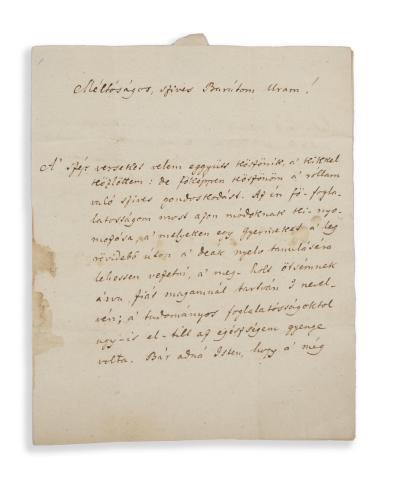 Méltóságos, szives Barátom Uram!
A' szép verseket velem eggyütt köszönik, a' kikkel
közlöttem: de főképpen köszönöm a' róllam
való szives gondoskodást. Az én fő-fogla-
latosságom most azon módoknak ki-nyo-
mozása, a' melyeken egy gyermeket a' leg
rövidebb úton a' deák nyelv tanulására
lehessen vezetni, a' meg-holt ötsémnek
árva fiát magamnál tartván 's nevel-
vén; a' tudományos foglalatosságoktol
ugy-is el-tilt az egésségem gyenge
volta. Bár adná Isten, hogy a' még